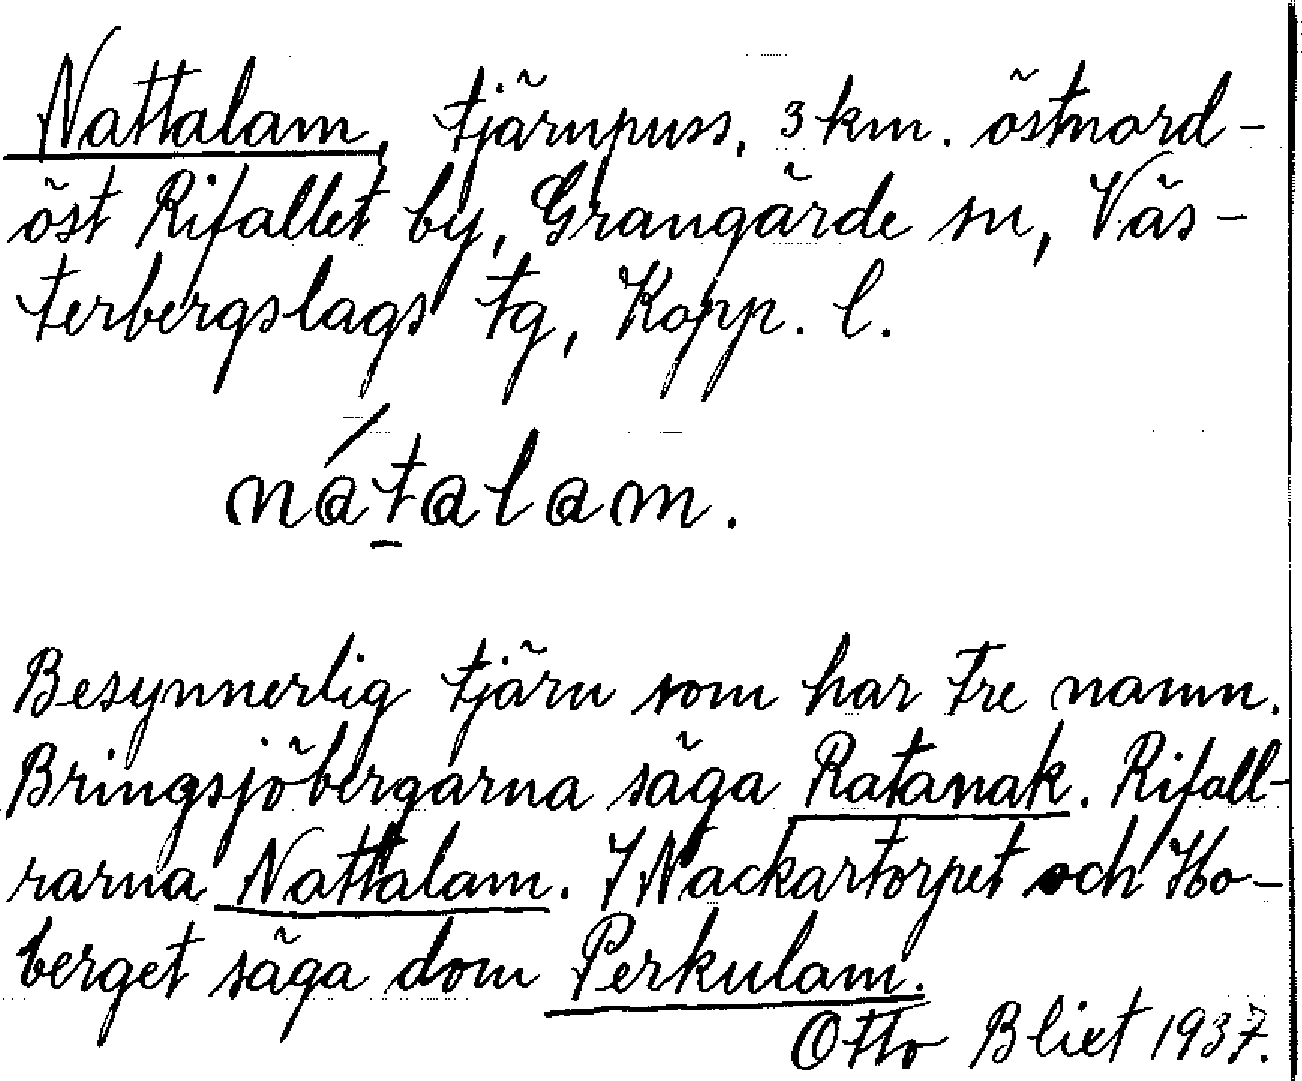 Nattalam, tjärnpuss, 3 km. östnord-
öst Rifallet by, Grangärde sn, Väs-
terbergslags tg, Kopp. l.
nátalam.
Besynnerlig tjärn som har tre namn.
Bringsjöbergarna säga Ratanak. Rifall-
rarna Nattalam. I Nackartorpet och Ho-
berget säga dom Perkulam.
Otto Blixt 1937.